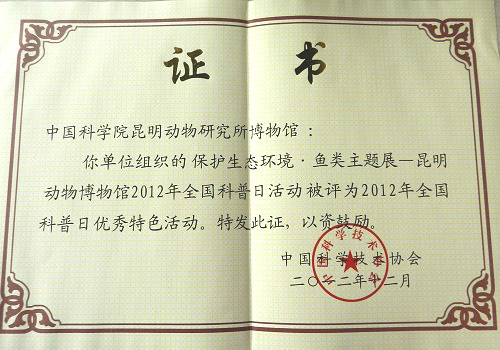 证 书
中国科学院昆明动物研究所博物馆：
你单位组织的 保护生态环境·鱼类主题展—昆明
动物博物馆2012年全国科普日活动 被评为2012年全国
科普日优秀特色活动。特发此证，以资鼓励。
中国科学技术协会
二〇一二年十二月
中国科学技术协会